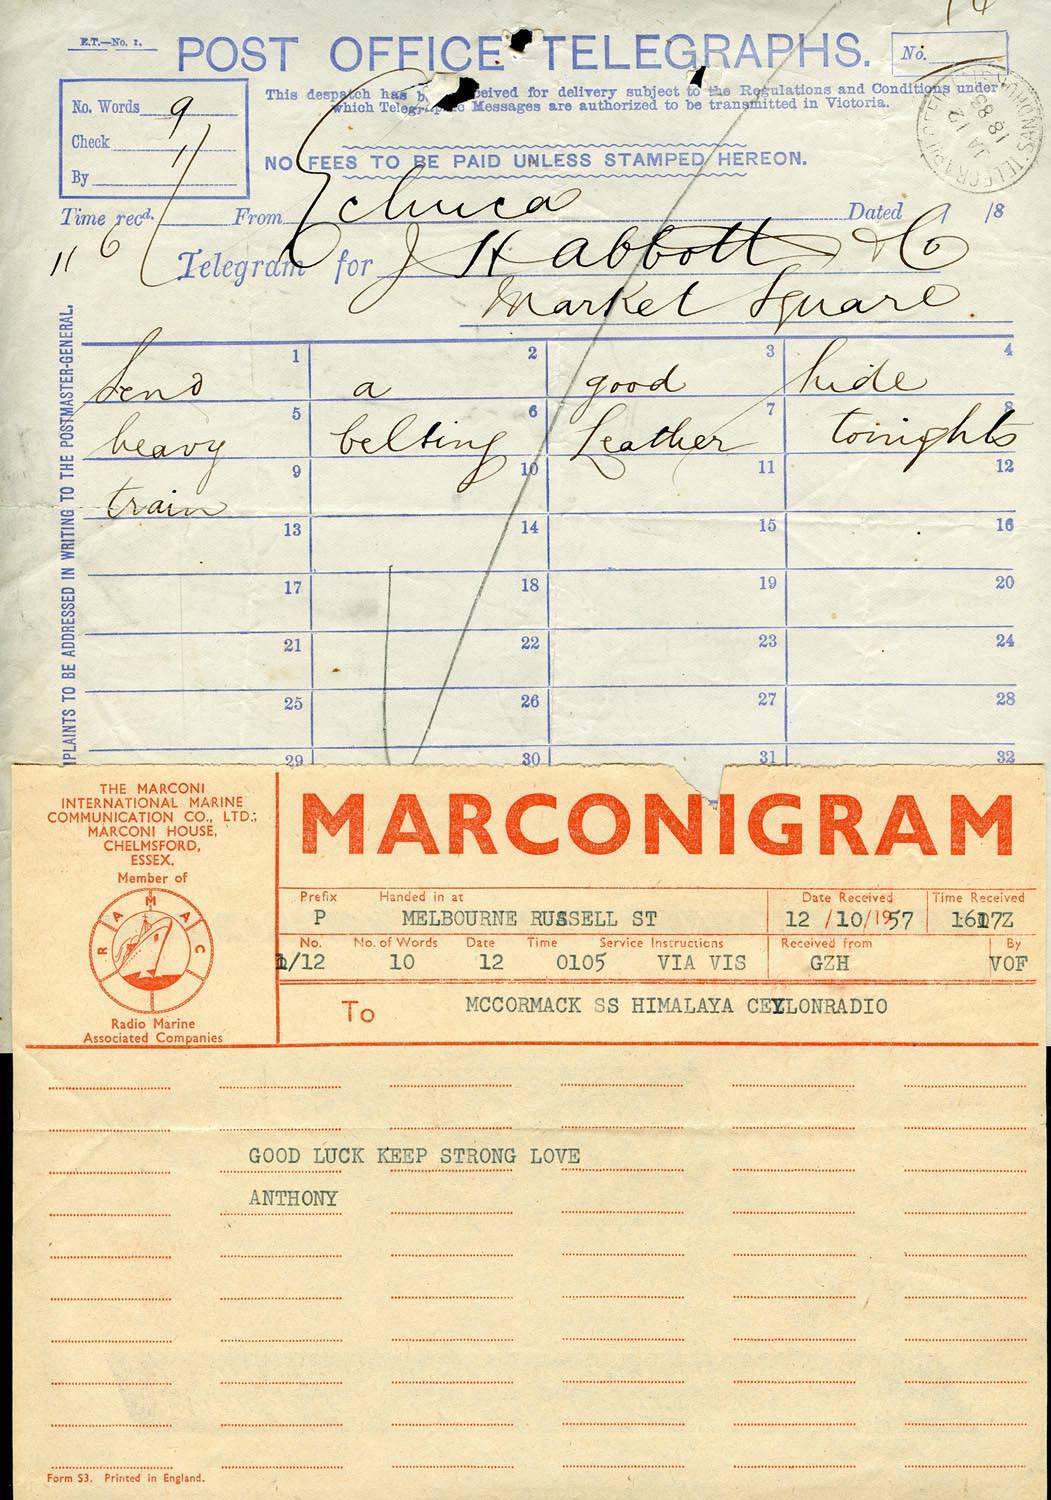 E.T.—No. 1.
POST OFFICE TELEGRAPHS.
No.
This despatch has b ceived for delivery subject to the Regulations and Conditions under
which Telegraphic Messages are authorized to be transmitted in Victoria.
No. Words 9
Check
By
NO FEES TO BE PAID UNLESS STAMPED HEREON.
Time recd. From Echuca Dated / /8
11 6
Telegram for J H Abbott & Co
Market Square
1 2 3 4
Send a good hide
5 6 7 8
heavy belting Leather tonights
9 10 11 12
train
13 14 15 16
17 18 19 20
21 22 23 24
25 26 27 28
29 30 31 32
MPLAINTS TO BE ADDRESSED IN WRITING TO THE POSTMASTER-GENERAL.
THE MARCONI
INTERNATIONAL MARINE
COMMUNICATION CO., LTD.;
MARCONI HOUSE,
CHELMSFORD,
ESSEX.
Member of
RAMAC
Radio Marine
Associated Companies
MARCONIGRAM
Prefix Handed in at Date Received Time Received
P MELBOURNE RUSSELL ST 12 /10/1957 1617Z
No. No. of Words Date Time Service Instructions Received from By
1/12 10 12 0105 VIA VIS GZH VOF
To MCCORMACK SS HIMALAYA CEYLONRADIO
GOOD LUCK KEEP STRONG LOVE
ANTHONY
Form S3. Printed in England.